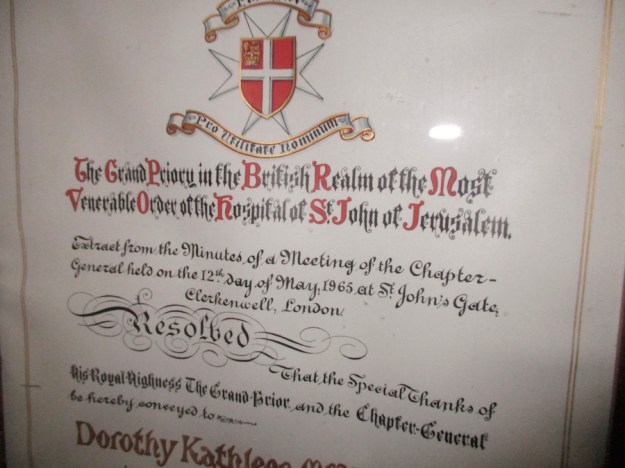 Pro Utilitate Hominum
The Grand Priory in the British Realm of the Most
Venerable Order of the Hospital of St John of Jerusalem.
Extract from the Minutes of a Meeting of the Chapter-
General held on the 12th day of May, 1965, at St John's Gate,
Clerkenwell, London.
Resolved
That the Special Thanks of
His Royal Highness The Grand Prior and the Chapter-General
be hereby conveyed to
Dorothy Kathleen